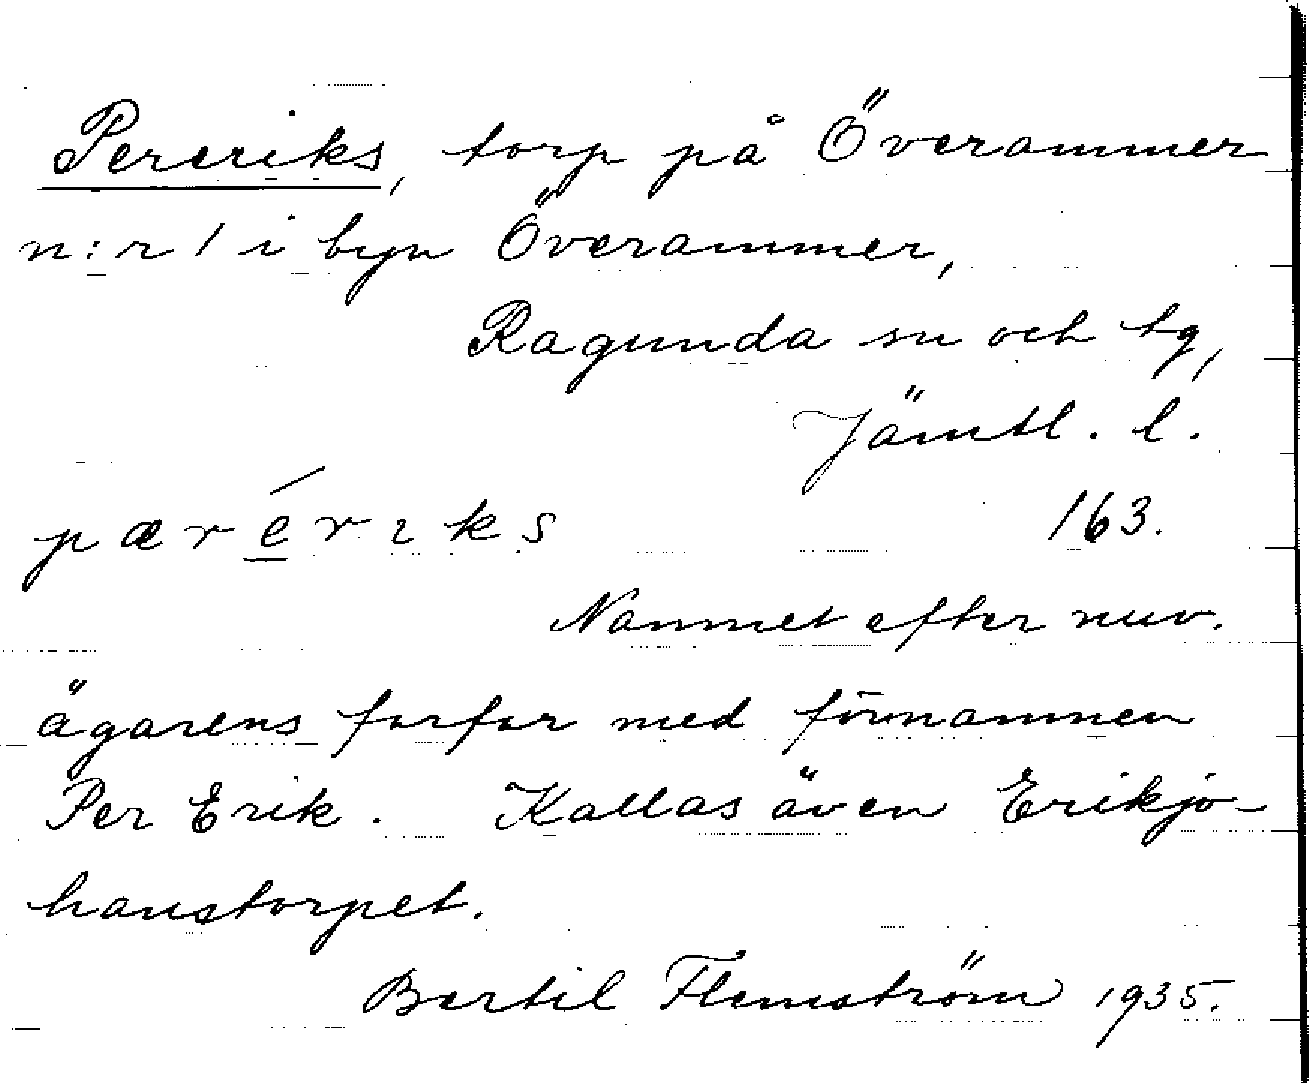 Pereriks, torp på Överammer
n:r 1 i byn Överammer,
Ragunda sn och tg,
Jämtl. l.
pærérıks 163.
Namnet efter nuv.
ägarens farfar med förnamnen
Per Erik. Kallas även Erikjo-
hanstorpet.
Bertil Flemström 1935.